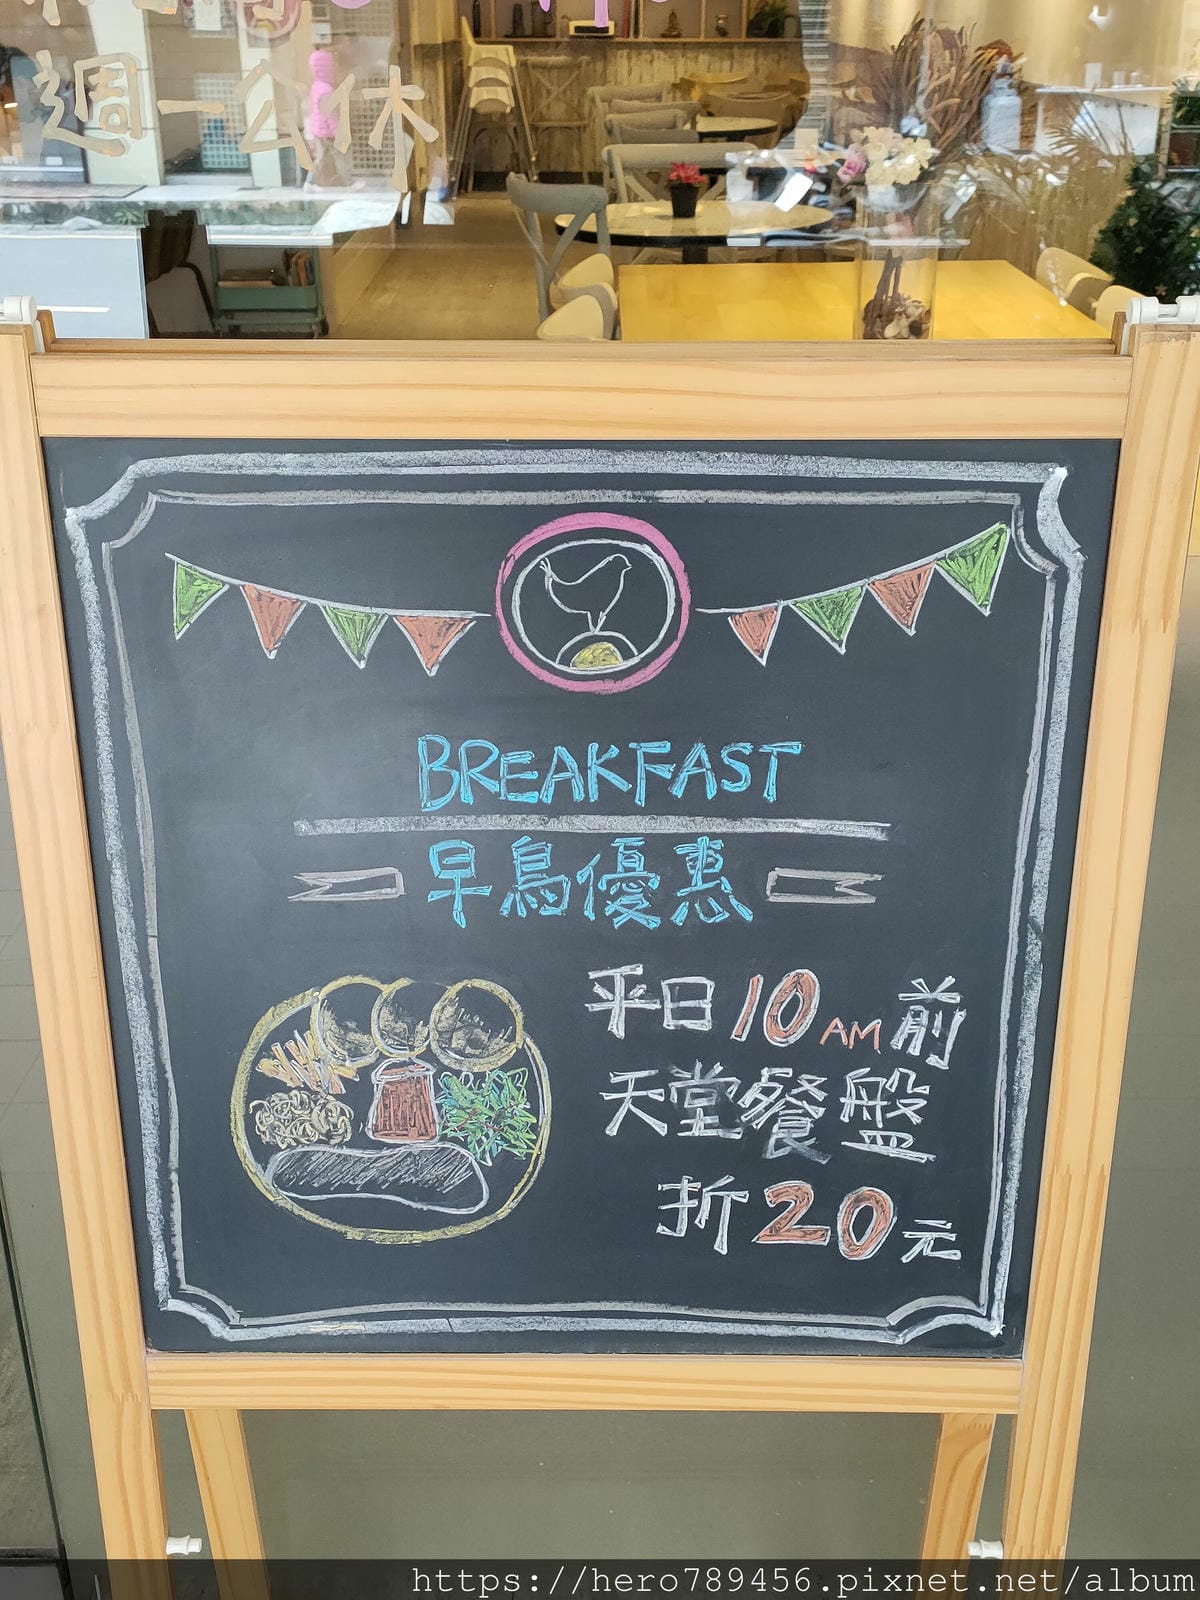 週一公休
BREAKFAST
早鳥優惠
平日10AM前
天堂餐盤
折20元
https://hero789456.pixnet.net/album